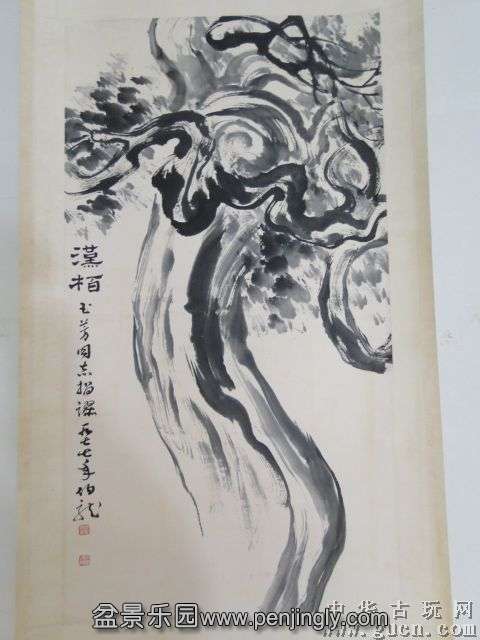 漢柏
玉芳同志指謬一九七七年伯龍
中华古玩网
盆景乐园www.penjingly.com
www.gucn.com